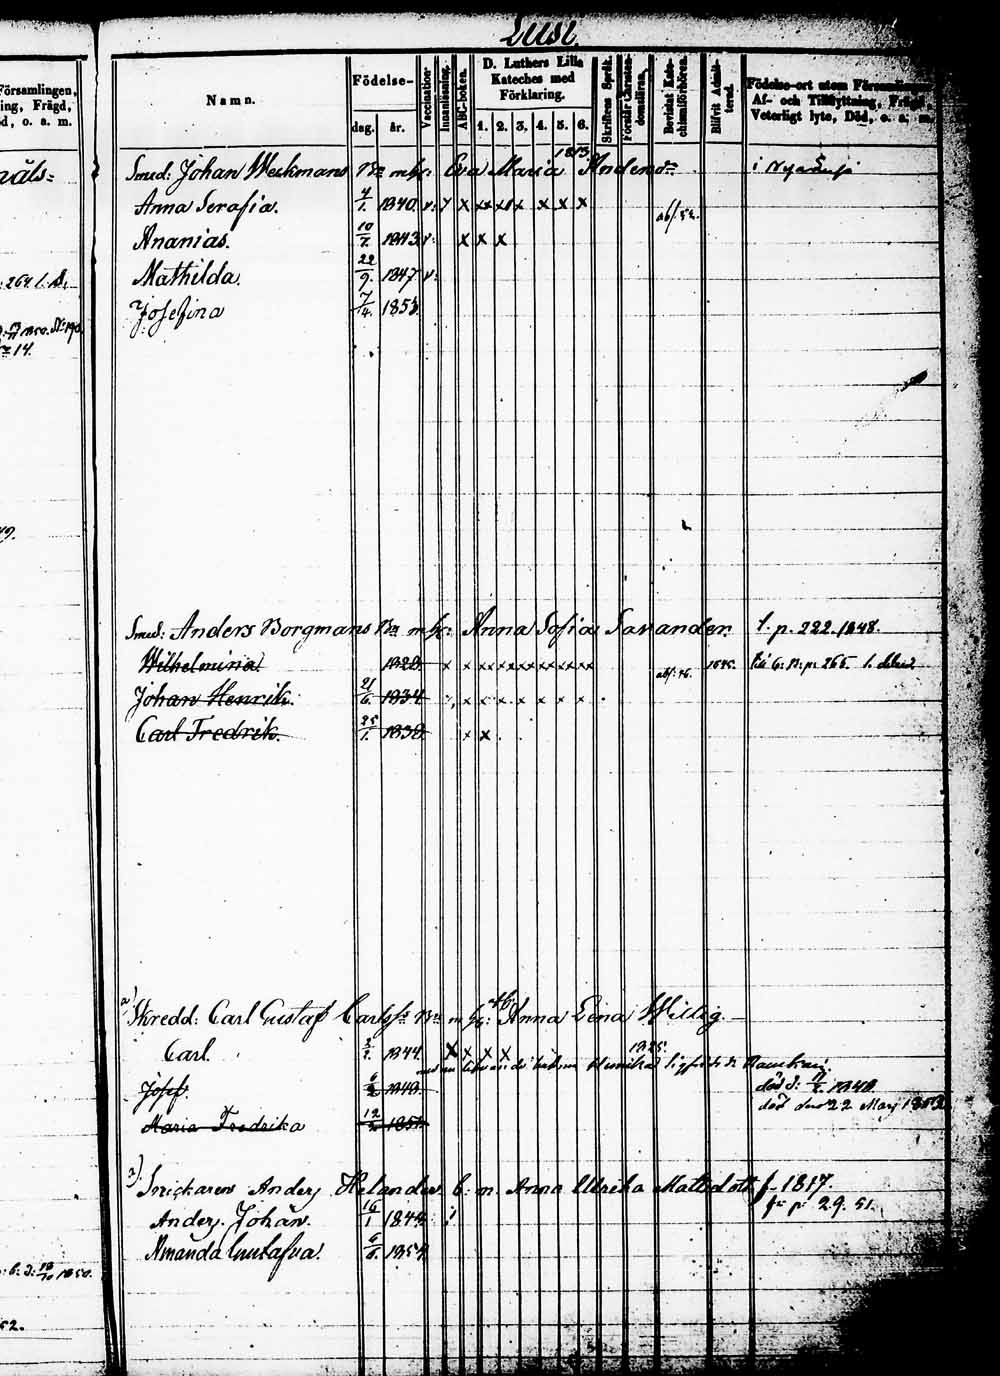 Lusi.
Församlingen,
ing, Frägd,
d, o. a. m.
Namn.
Födelse-
dag. år.
Vaccination
Innanläsning.
ABC-boken.
D. Luthers Lilla
Kateches med
Förklaring.
1. 2. 3. 4. 5. 6.
Skriftens Språk.
Bevistat Kate-
chismiförhören.
Blifvit Admit-
terad.
Födelse-ort utom Församlingen
Af- och Tillflyttning, Frägd,
Veterligt lyte, Död, o. a. m.
1813.
Smed: Johan Weckmans Bn m h: Eva Maria
Anna Serafia. 4/1. 1840. v: x x x x x x x x
Ananias. 10/7. 1843. v: x x x
Mathilda. 22/9. 1847 v:
Josefina 7/4. 1853
: 264 l. B.
14.
49.
Smed: Anders Borgmans Bn m h: Anna Sofia Savander. p. 222. 1848.
Wilhelmina 1828 x x x x x x x x x 1845. p: 265
Johan Henrik. 21/6. 1834 x x x x x x x
Carl Fredrik. 25/1. 1838 x x
a) Skredd: Carl Gustaf Carlss: Bn m h: Anna Lena Willig.
1825.
Carl. 1844 x x x x
Josef. 1848 död d: 17/2. 1848
Maria Fredrika 12/2 1851 död den 22 Maij 1853
2) Snickaren Anders Helander b. m. Anna Ulrika Matsdott f. 1817.
Anders Johan. 16/1 1849 p. 29. 51.
Amanda Gustafva. 6/6. 1854
52.